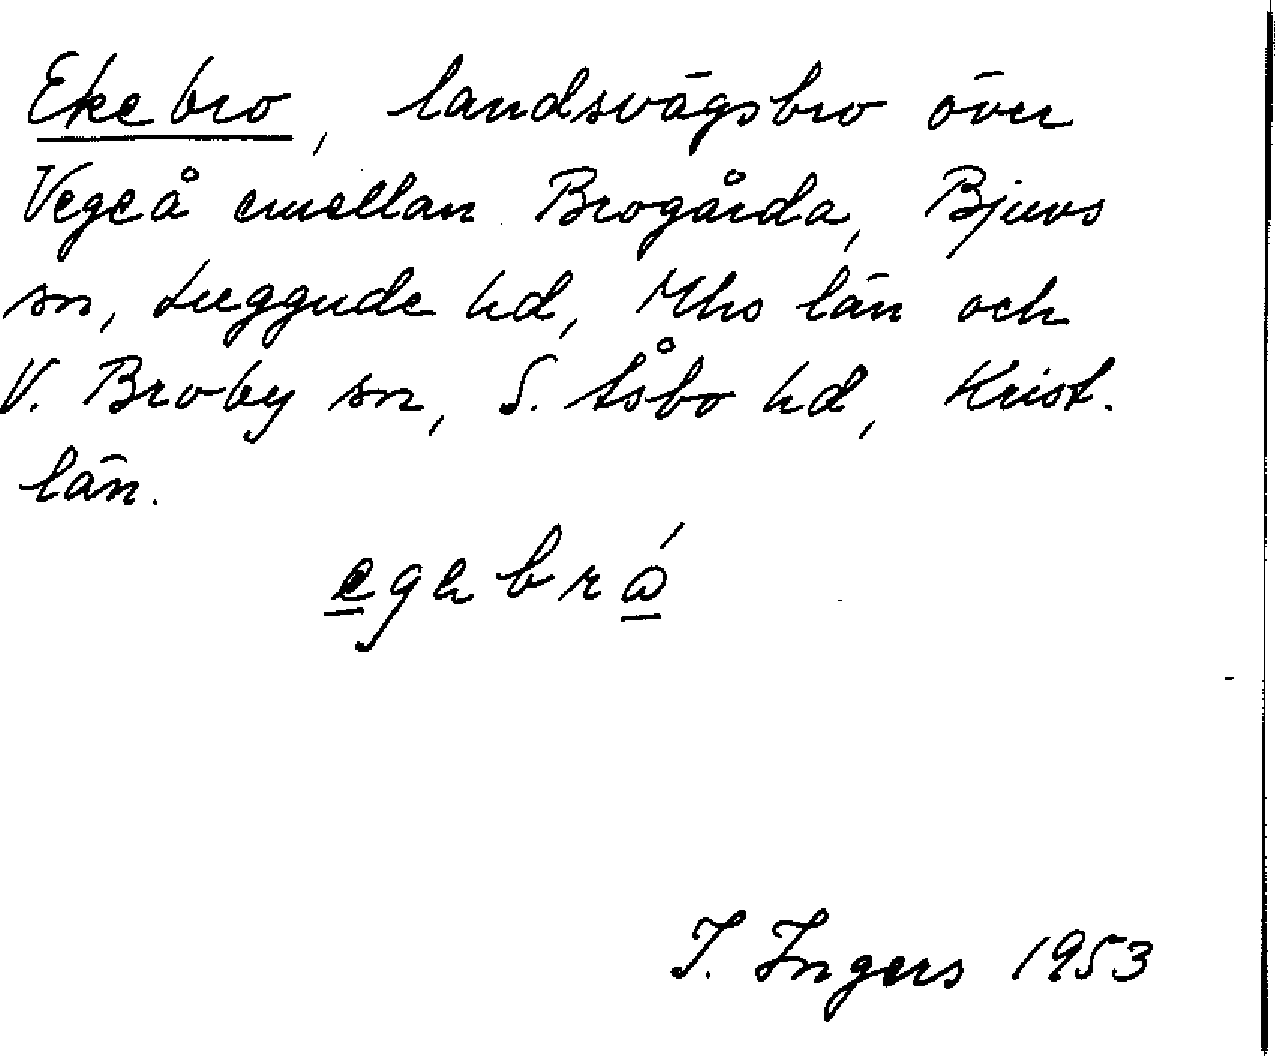 Ekebro, landsvägsbro över
Vegeå emellan Brogårda, Bjuvs
sn, Luggude hd, Mhs län och
V. Broby sn, S. Åsbo hd, Krist.
län.
egəbró
I. Ingers 1953